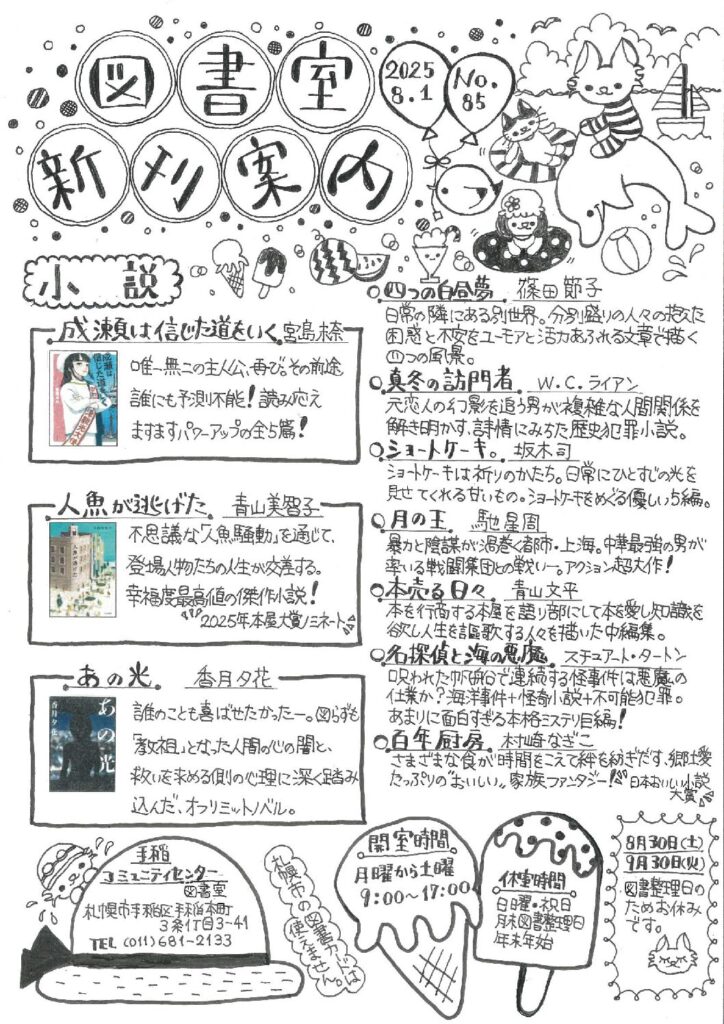 図書室
新刊案内
2025
8.1
No.
85
小説
成瀬は信じた道をいく 宮島未奈
成瀬は
信じた
道をいく
唯一無二の主人公、再び。その前途、
誰にも予測不能！読み応え
ますますパワーアップの全5篇！
人魚が逃げた 青山美智子
人魚が逃げた
不思議な「人魚騒動」を通じて、
登場人物たちの人生が交差する。
幸福度最高値の傑作小説！
2025年本屋大賞ノミネート
あの光 香月夕花
あの光
香月夕花
誰のことも喜ばせたかったー。図らずも
「教祖」となった人間の心の闇と、
救いを求める側の心理に深く踏み
込んだ、オフリミットノベル。
四つの白昼夢 篠田節子
日常の隣にある別世界。分別盛りの人々の抱えた
困惑と不安をユーモアと活力あふれる文章で描く
四つの風景。
真冬の訪問者 W.C.ライアン
元恋人の幻影を追う男が複雑な人間関係を
解き明かす、詩情にみちた歴史犯罪小説。
ショートケーキ。 坂木司
ショートケーキは祈りのかたち。日常にひとすじの光を
見せてくれる甘いもの。ショートケーキをめぐる優しい5編。
月の王 馳星周
暴力と陰謀が渦巻く都市・上海。中華最強の男が
率いる戦闘集団との戦い―。アクション超大作！
本売る日々 青山文平
本を行商する本屋を語り部にして本を愛し知識を
欲し人生を謳歌する人々を描いた中編集。
名探偵と海の悪魔 スチュアート・タートン
呪われた帆船で連続する怪事件は悪魔の
仕業か？海洋事件+怪奇小説+不可能犯罪。
あまりに面白すぎる本格ミステリ巨編！
百年厨房 村崎なぎこ
さまざまな食が時間をこえて絆を紡ぎだす、郷土愛
たっぷりの“おいしい”家族ファンタジー！日本おいしい小説
大賞
手稲
コミュニティセンター
図書室
札幌市手稲区手稲本町
3条1丁目3-41
TEL (011)681-2133
札幌市の図書カードは
使えません。
開室時間
月曜から土曜
9:00〜17:00
休室時間
日曜・祝日
月末図書整理日
年末年始
8月30日(土)
9月30日(火)
図書整理日の
ためお休み
です。